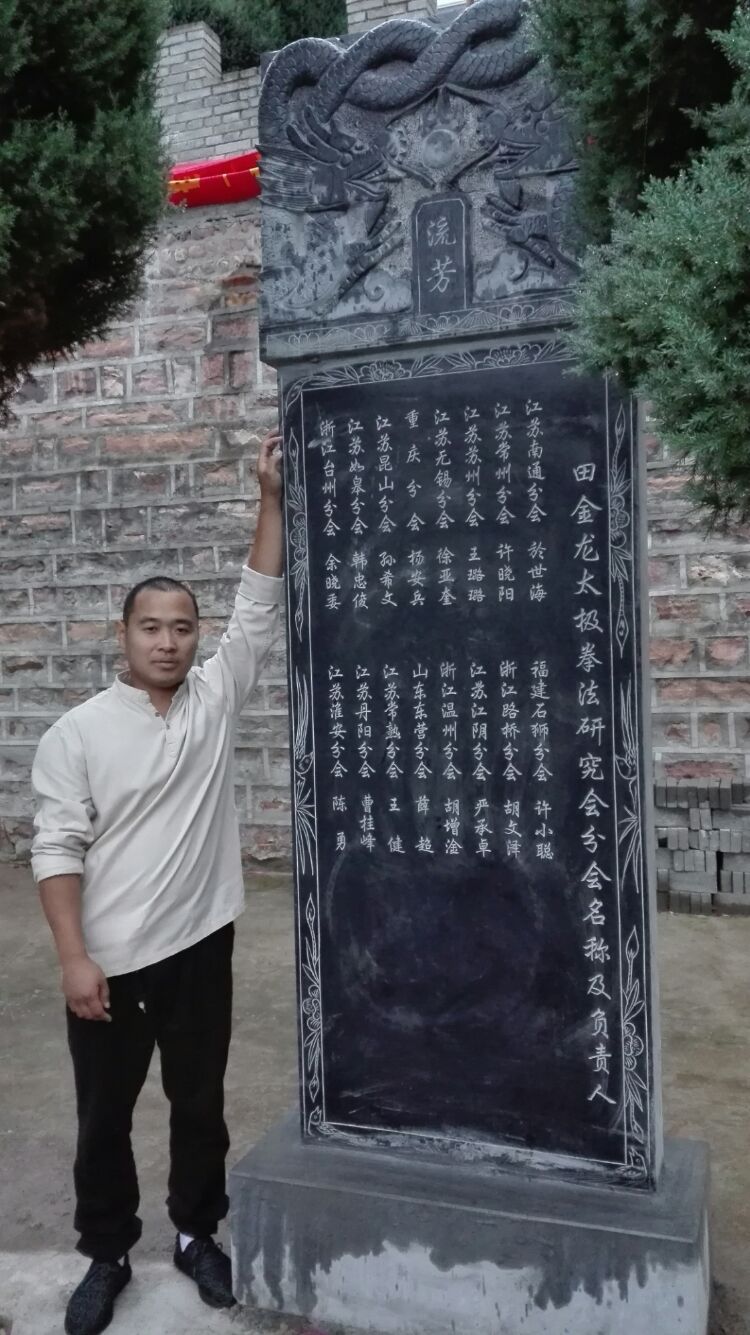 流芳
田金龙太极拳法研究会分会名称及负责人
江苏南通分会 於世海
江苏常州分会 许晓阳
江苏苏州分会 王璐璐
江苏无锡分会 徐亚奎
重庆分会 杨安兵
江苏昆山分会 孙希文
江苏如皋分会 韩忠俊
浙江台州分会 余晓委
福建石狮分会 许小聪
浙江路桥分会 胡文泽
江苏江阴分会 严承卓
浙江温州分会 胡增淦
山东东营分会 薛超
江苏常熟分会 王健
江苏丹阳分会 曹桂峰
江苏淮安分会 陈勇